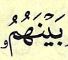 بَيْنَهُمُۥ